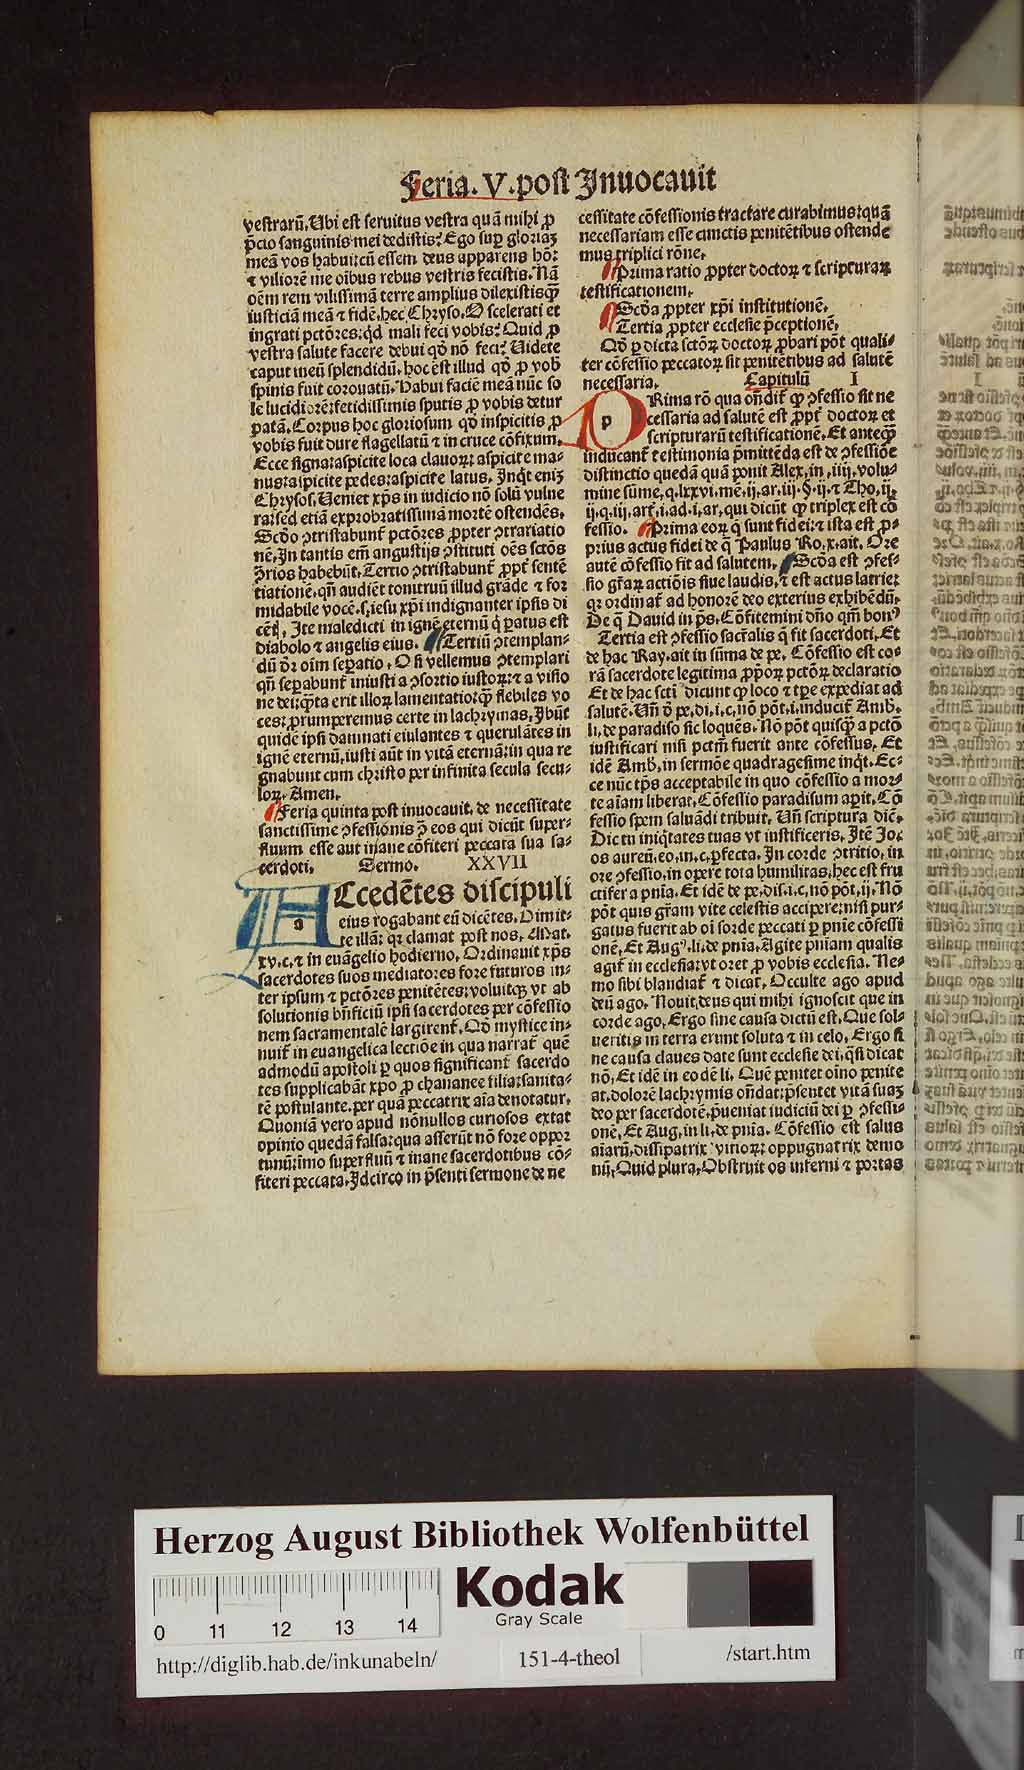 Feria. V. post Inuocauit
vestrarū. Ubi est seruitus vestra quā mihi ꝓ
p̄cio sanguinis mei dedistis? Ego suꝑ gloriaꝫ
meā vos habui: cū essem deus apparens hō:
⁊ viliorē me oībus rebus vestris fecistis. Nā
oēm rem vilissimā terre amplius dilexistisqꝫ
iusticiā meā ⁊ fidē. hec Chryso. O scelerati et
ingrati pctōres: qd mali feci vobis? Quid ꝓ
vestra salute facere debui qd nō feci? Uidete
caput meū splendidū. hoc est illud qd ꝓ vob
spinis fuit coronatū. Habui faciē meā nūc so
le lucidiorē: fetidissimis sputis ꝓ vobis detur
patā. Corpus hoc gloriosum qd inspicitis ꝓ
vobis fuit dure flagellatū ⁊ in cruce cōfixum.
Ecce signa: aspicite loca clauoꝝ: aspicite ma-
nus: aspicite pedes: aspicite latus. Inqt eniꝫ
Chrysos. Ueniet xp̄s in iudicio nō solū vulne
ra: sed etiā exprobratissimā mortē ostendēs.
Scdo ꝯtristabunt pctōres ꝓpter ꝯtrariatio
nē. In tantis em̄ angustijs ꝯstituti oēs sctōs
ꝯrios habebūt. Tertio ꝯtristabunt ꝓpt sentē
tiationē. qn̄ audiēt tonitruū illud grāde ⁊ for
midabile vocē. s. iesu xp̄i indignanter ipsis di
cētꝭ. Ite maledicti in ignē eternū q̇ ꝑatus est
diabolo ⁊ angelis eius. Tertiū ꝯtemplan-
dū ōꝫ oīm seꝑatio. O si vellemus ꝯtemplari
qn̄ seꝑabunt iniusti a ꝯsortio iustoꝝ: ⁊ a visio
ne dei: q̄ta erit illoꝝ lamentatio: qꝫ flebiles vo
ces: prumperemus certe in lachrymas. Ibūt
quidē ipsi damnati eiulantes ⁊ querulātes in
ignē eternū. iusti aūt in vitā eternā: in qua re
gnabunt cum christo per infinita secula secu-
loꝝ. Amen.
Feria quinta post inuocauit. de necessitate
sanctissime ꝯfessionis ꝯ eos qui dicūt super-
fluum esse aut inane cōfiteri peccata sua sa-
cerdoti. Sermo. XXVII
a Accedētes discipuli
eius rogabant eū dicētes. Dimit-
te illā: qꝛ clamat post nos. Mat.
xv. c. ⁊ in euāgelio hodierno. Ordinauit xp̄s
sacerdotes suos mediatores fore futuros in-
ter ipsum ⁊ pctōres penitētes: voluitqꝫ vt ab
solutionis bn̄ficiū ipsi sacerdotes per cōfessio
nem sacramentalē largirent. Qd mystice in-
nuit in euangelica lectiōe in qua narrat quē
admodū apostoli ꝑ quos significant sacerdo
tes supplicabāt xpo ꝓ chananee filia: sanita-
tē postulante. per quā peccatrix aīa denotatur.
Quoniā vero apud nōnullos curiosos extat
opinio quedā falsa: qua asserūt nō fore oppor
tunū: īmo superfluū ⁊ inane sacerdotibus cō-
fiteri peccata. Idcirco in p̄senti sermone de ne
cessitate cōfessionis tractare curabimus: quā
necessariam esse cunctis penitētibus ostende
mus triplici rōne.
Prima ratio ꝓpter doctoꝝ ⁊ scripturaꝝ
testificationem.
Scda ꝓpter xp̄i institutionē.
Tertia ꝓpter ecclesie p̄ceptionē.
Qd ꝑ dicta sctōꝝ doctoꝝ ꝓbari pōt quali-
ter cōfessio peccatoꝝ sit penitētibus ad salutē
necessaria. Capitulū I
p PRima rō qua ondit qꝫ ꝯfessio sit ne
cessaria ad salutē est ꝓpt doctoꝝ et
scripturarū testificationē. Et anteqꝫ
inducant testimonia p̄mittēda est de ꝯfessiōe
distinctio quedā quā ponit Alex. in .iiij. volu-
mine sūme. q. lxxvi. mē. ij. ar. iij. §. ij. ⁊ Tho. ij.
ij. q. iij. art. i. ad. i. ar. qui dicūt qꝫ triplex est cō
fessio. Prima eoꝝ q̄ sunt fidei: ⁊ ista est ꝓ-
prius actus fidei de q̄ Paulus Ro. x. ait. Ore
autē cōfessio fit ad salutem. Scda est ꝯfes-
sio grāꝝ actiōis siue laudis. ⁊ est actus latrie:
qꝛ ordinat ad honorē deo exterius exhibēdū.
De q̄ Dauid in ps. Cōfitemini dn̄o qm̄ bonꝰ
Tertia est ꝯfessio sacr̄alis q̄ fit sacerdoti. Et
de hac Ray. ait in sūma de pe. Cōfessio est co-
rā sacerdote legitima ꝓprioꝝ pctōꝝ declaratio
Et de hac scti dicunt qꝫ loco ⁊ tꝑe expediat ad
salutē. Un̄ ō pe. di. i. c. nō pōt. i. inducit Amb.
li. de paradiso sic loquēs. Nō pōt quisqꝫ a pctō
iustificari nisi pctm̄ fuerit ante cōfessus. Et
idē Amb. in sermōe quadragesime inqt. Ec-
ce nūc tp̄s acceptabile in quo cōfessio a mor-
te aīam liberat. Cōfessio paradisum aꝑit. Cō
fessio spem saluādi tribuit. Un̄ scriptura dic̄.
Dic tu iniqtates tuas vt iustificeris. Itē Jo.
os aureū. eo. in. c. ꝑfecta. In corde ꝯtritio, in
ore ꝯfessio, in opere tota humilitas. hec est fru
ctifera pn̄ia. Et idē de pe. dis. i. c. nō pōt. ij. Nō
pōt quis grām vite celestis accipere: nisi pur-
gatus fuerit ab oī sorde peccati ꝑ pn̄ie cōfessi
onē. Et Augꝰ. li. de pn̄ia. Agite pn̄iam qualis
agit in ecclesia: vt oret ꝓ vobis ecclesia. Ne-
mo sibi blandiat ⁊ dicat. Occulte ago apud
deū ago. Nouit. deus qui mihi ignoscit que in
corde ago. Ergo sine causa dictū est. Que sol-
ueritis in terra erunt soluta ⁊ in celo. Ergo si
ne causa claues date sunt ecclesie dei. q̄si dicat
nō. Et idē in eodē li. Quē penitet oīno penite
at. dolorē lachrymis ondat: p̄sentet vitā suaꝫ
deo per sacerdotē. p̄ueniat iudiciū dei ꝑ ꝯfessi-
onē. Et Aug. in li. de pn̄ia. Cōfessio est salus
aīarū. dissipatrix vitioꝝ: oppugnatrix demo
nū. Quid plura. Obstruit os inferni ⁊ portas
Herzog August Bibliothek Wolfenbüttel
Kodak
Gray Scale
0 11 12 13 14
http://diglib.hab.de/inkunabeln/ 151-4-theol /start.htm